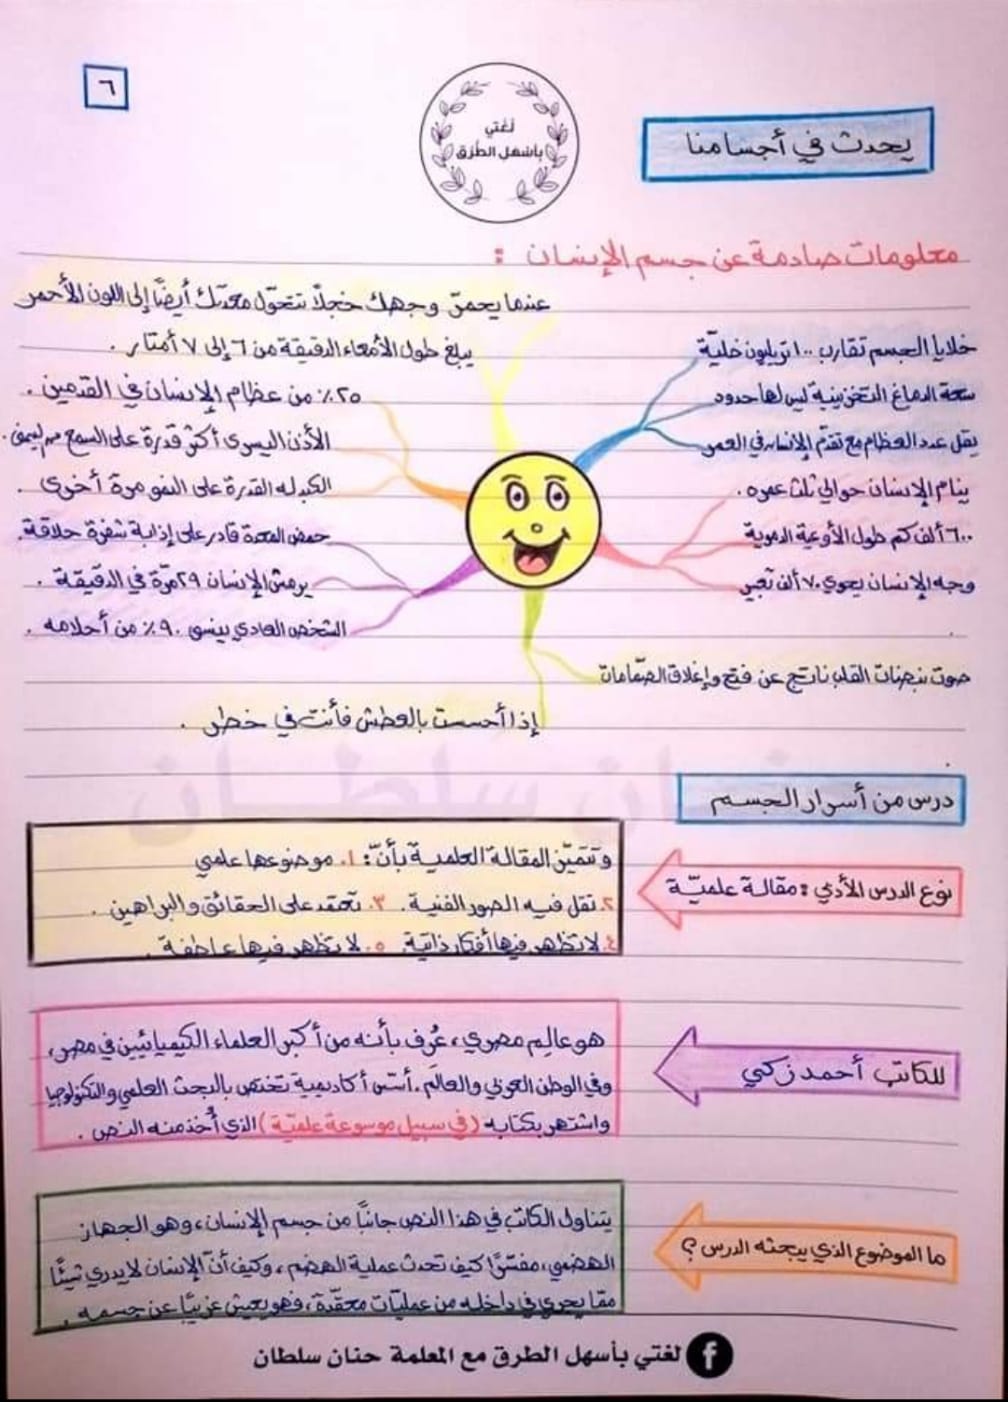 ٦
لغتي
بأسهل الطرق
يحدث في أجسامنا
معلومات صادمة عن جسم الإنسان :
عندما يحمرّ وجهك خجلاً تتحوّل معدتك أيضًا إلى اللون الأحمر
خلايا الجسم تقارب ١٠٠ تريليون خليّة
سعة الدماغ التخزينية ليس لها حدود
يقل عدد العظام مع تقدّم الإنسان في العمر
ينام الإنسان حوالي ثلث عمره .
٦٠٠ ألف كم طول الأوعية الدموية
وجه الإنسان يحوي ٧٠ ألف تعبير
يبلغ طول الأمعاء الدقيقة من ٦ إلى ٧ أمتار .
٢٥٪ من عظام الإنسان في القدمين .
الأذن اليسرى أكثر قدرة على السمع من اليمنى .
الكبد له القدرة على النمو مرة أخرى .
حمض المعدة قادر على إذابة شفرة حلاقة .
يرمش الإنسان ٢٩ مرّة في الدقيقة .
الشخص العادي ينسى ٩٠٪ من أحلامه .
صوت نبضات القلب ناتج عن فتح وإغلاق الصّمامات
إذا أحسست بالعطش فأنت في خطر .
حنان سلطان
درس من أسرار الجسم
نوع الدرس الأدبي : مقالة علميّة
وتتميّز المقالة العلمية بأنّ : ١. موضوعها علمي
٢. تقل فيه الصور الفنية . ٣. تعتمد على الحقائق والبراهين .
٤. لا تظهر فيها أفكار ذاتية . ٥. لا تظهر فيها عاطفة .
للكاتب أحمد زكي
هو عالِم مصري ، عُرف بأنه من أكبر العلماء الكيميائيين في مصر ،
وفي الوطن العربي والعالم . أسّس أكاديمية تختص بالبحث العلمي والتكنولوجيا
واشتهر بكتابه (في سبيل موسوعة علميّة) الذي أُخذ منه النص .
ما الموضوع الذي يبحثه الدرس ؟
يتناول الكاتب في هذا النص جانبًا من جسم الإنسان ، وهو الجهاز
الهضمي ، مفسّرًا كيف تحدث عملية الهضم ، وكيف أنّ الإنسان لا يدري شيئًا
ممّا يجري في داخله من عمليّات معقّدة ، فهو يعيش غريبًا عن جسمه .
لغتي بأسهل الطرق مع المعلمة حنان سلطان